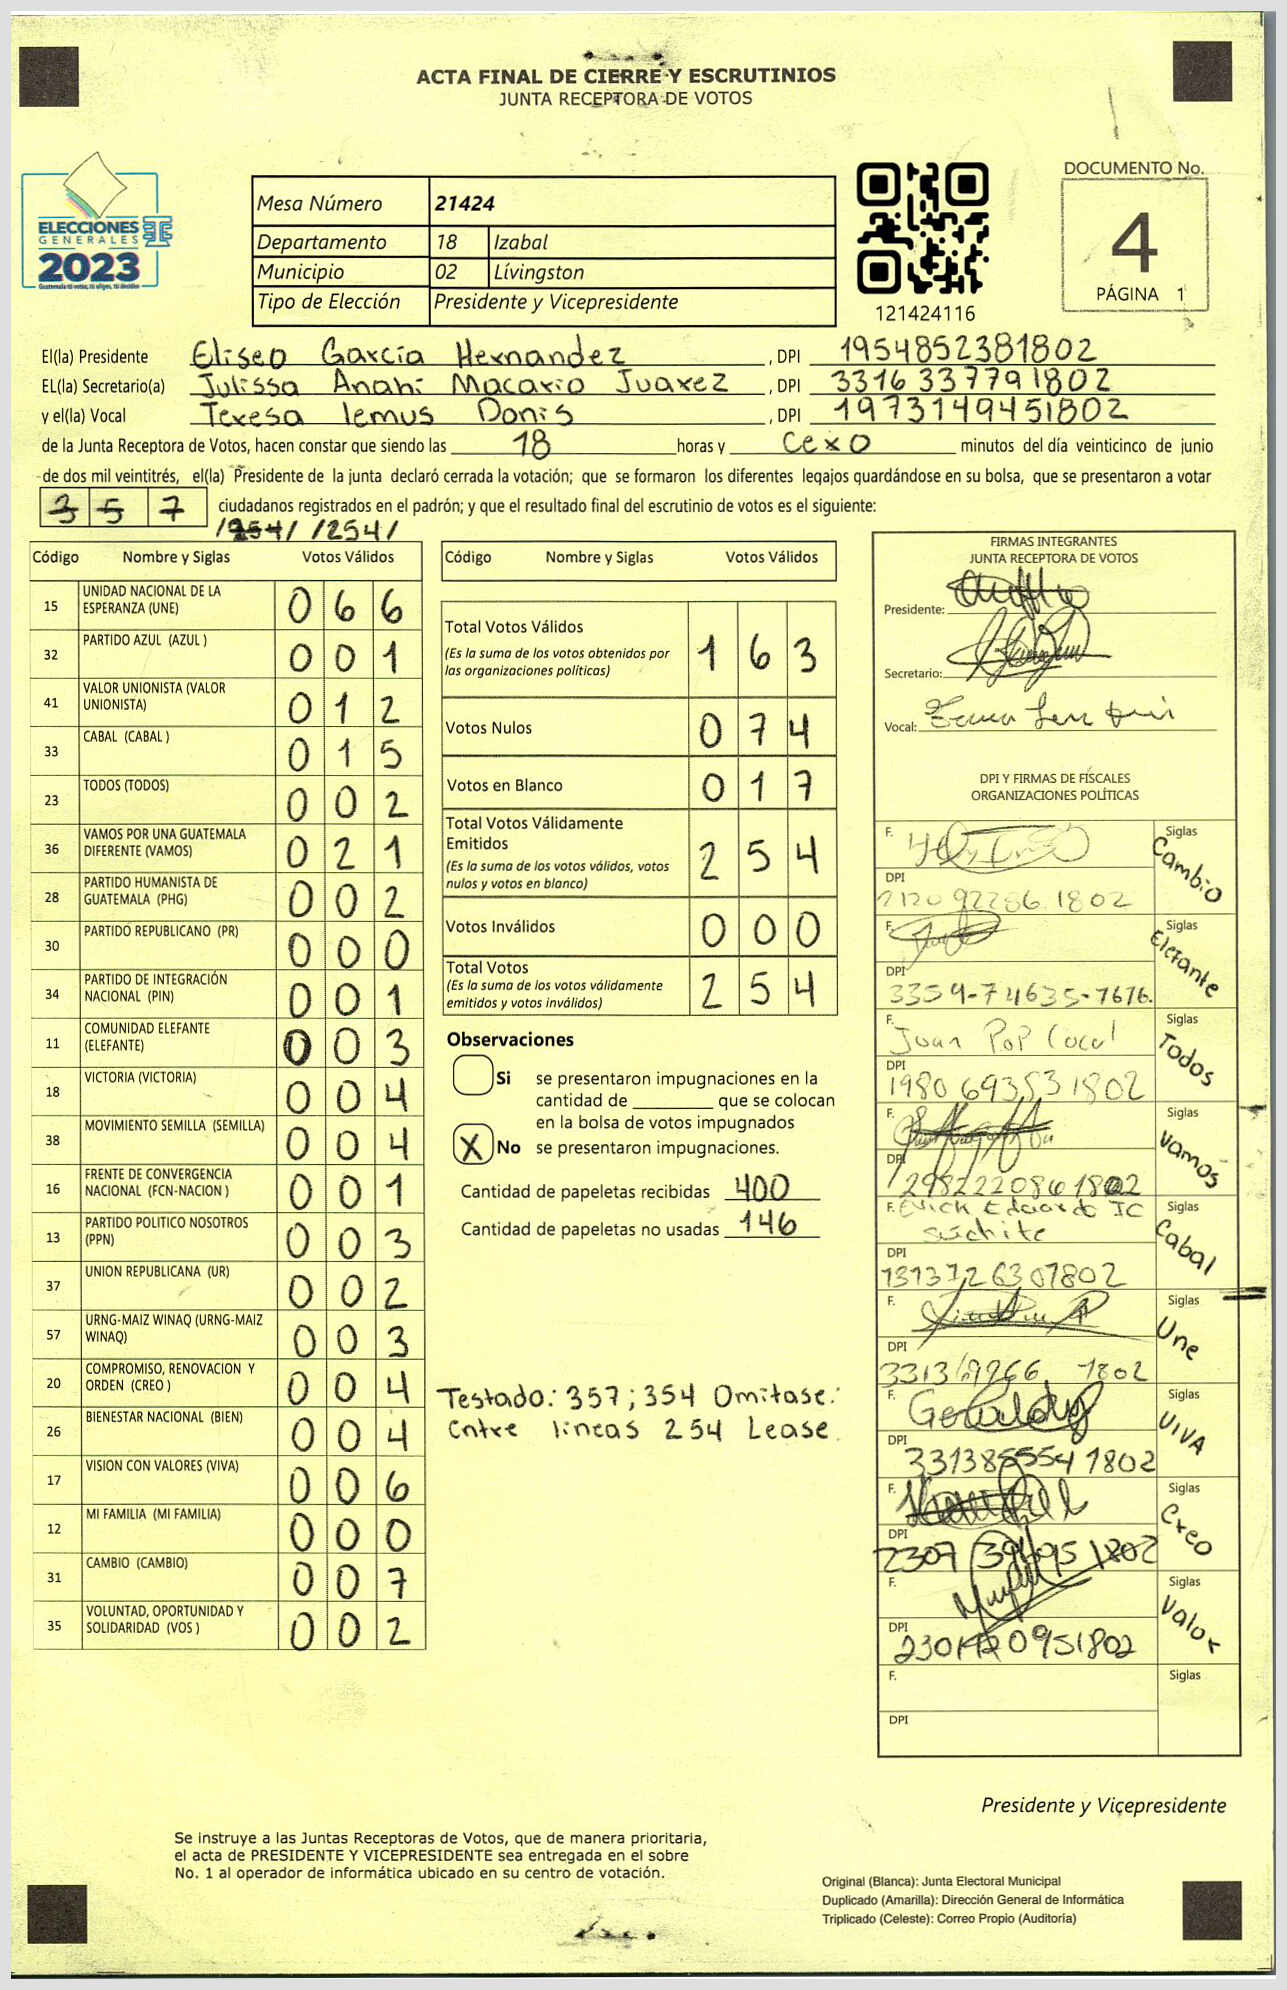 ACTA FINAL DE CIERRE Y ESCRUTINIOS
JUNTA RECEPTORA DE VOTOS
ELECCIONES
GENERALES
2023
Guatemala tú votas, tú eliges, tú decides
Mesa Número 21424
Departamento 18 Izabal
Municipio 02 Lívingston
Tipo de Elección Presidente y Vicepresidente
121424116
DOCUMENTO No.
4
PÁGINA 1
El(la) Presidente Eliseo García Hernandez, DPI 1954852381802
EL(la) Secretario(a) Julissa Anahi Macario Juarez, DPI 3316337791802
y el(la) Vocal Teresa lemus Donis, DPI 1973149451802
de la Junta Receptora de Votos, hacen constar que siendo las 18 horas y cero minutos del día veinticinco de junio
de dos mil veintitrés, el(la) Presidente de la junta declaró cerrada la votación; que se formaron los diferentes legajos guardándose en su bolsa, que se presentaron a votar
357 ciudadanos registrados en el padrón; y que el resultado final del escrutinio de votos es el siguiente:
/254/
Código Nombre y Siglas Votos Válidos
15 UNIDAD NACIONAL DE LA ESPERANZA (UNE) 066
32 PARTIDO AZUL (AZUL ) 001
41 VALOR UNIONISTA (VALOR UNIONISTA) 012
33 CABAL (CABAL ) 015
23 TODOS (TODOS) 002
36 VAMOS POR UNA GUATEMALA DIFERENTE (VAMOS) 021
28 PARTIDO HUMANISTA DE GUATEMALA (PHG) 002
30 PARTIDO REPUBLICANO (PR) 000
34 PARTIDO DE INTEGRACIÓN NACIONAL (PIN) 001
11 COMUNIDAD ELEFANTE (ELEFANTE) 003
18 VICTORIA (VICTORIA) 004
38 MOVIMIENTO SEMILLA (SEMILLA) 004
16 FRENTE DE CONVERGENCIA NACIONAL (FCN-NACION ) 001
13 PARTIDO POLITICO NOSOTROS (PPN) 003
37 UNION REPUBLICANA (UR) 002
57 URNG-MAIZ WINAQ (URNG-MAIZ WINAQ) 003
20 COMPROMISO, RENOVACION Y ORDEN (CREO ) 004
26 BIENESTAR NACIONAL (BIEN) 004
17 VISION CON VALORES (VIVA) 006
12 MI FAMILIA (MI FAMILIA) 000
31 CAMBIO (CAMBIO) 007
35 VOLUNTAD, OPORTUNIDAD Y SOLIDARIDAD (VOS ) 002
Código Nombre y Siglas Votos Válidos
Total Votos Válidos 163
(Es la suma de los votos obtenidos por
las organizaciones políticas)
Votos Nulos 074
Votos en Blanco 017
Total Votos Válidamente
Emitidos 254
(Es la suma de los votos válidos, votos
nulos y votos en blanco)
Votos Inválidos 000
Total Votos 254
(Es la suma de los votos válidamente
emitidos y votos inválidos)
Observaciones
Si se presentaron impugnaciones en la
cantidad de ________ que se colocan
en la bolsa de votos impugnados
X No se presentaron impugnaciones.
Cantidad de papeletas recibidas 400
Cantidad de papeletas no usadas 146
Testado: 357; 354 Omitase:
Entre lineas 254 Lease.
FIRMAS INTEGRANTES
JUNTA RECEPTORA DE VOTOS
Presidente:
Secretario:
Vocal:
DPI Y FIRMAS DE FÍSCALES
ORGANIZACIONES POLÍTICAS
F. Siglas Cambio
DPI
F. Siglas Elefante
DPI 3359-74635-7676.
F. Juan Pop Cucul Siglas Todos
DPI 1980693531802
F. Siglas Vamos
DPI 2982220861802
F. Erick Eduardo IC Siglas Cabal
Suchite
DPI
F. Siglas Une
DPI
F. Siglas VIVA
DPI 3313855541802
F. Siglas Creo
DPI
F. Siglas Valor
DPI
F. Siglas
DPI
Presidente y Vicepresidente
Se instruye a las Juntas Receptoras de Votos, que de manera prioritaria,
el acta de PRESIDENTE Y VICEPRESIDENTE sea entregada en el sobre
No. 1 al operador de informática ubicado en su centro de votación.
Original (Blanca): Junta Electoral Municipal
Duplicado (Amarilla): Dirección General de Informática
Triplicado (Celeste): Correo Propio (Auditoría)